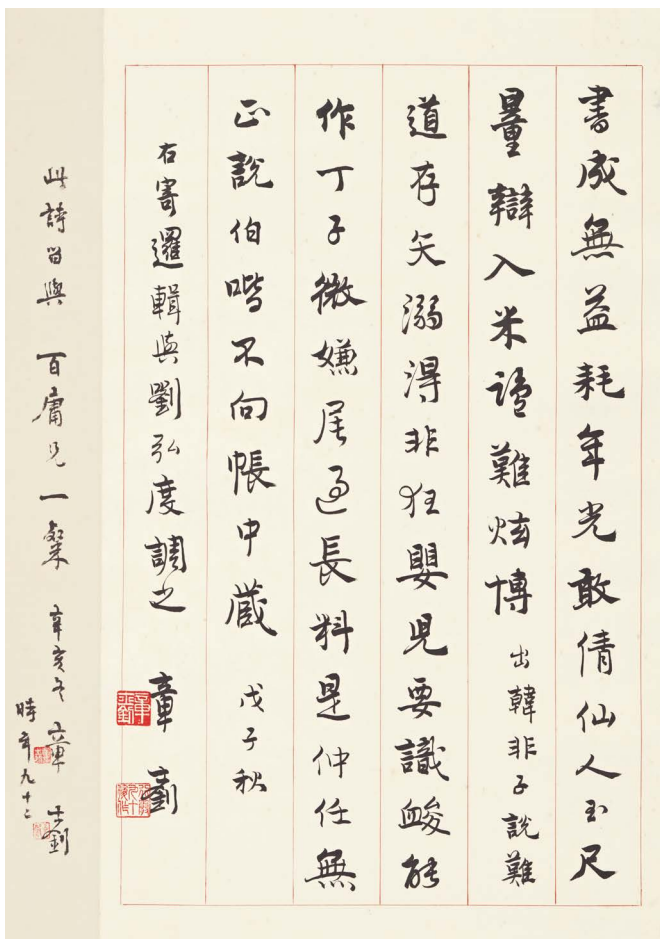 書成無益耗年光敢倩仙人玉尺
量辯入米鹽難炫博 出韓非子說難
道存矢溺得非狂嬰兒要識䘒能
作丁子微嫌尾過長料是仲任無
正說伯喈不向帳中蔵 戊子秋
右寄邏輯與劉弘度調之 章士釗
此詩留與 百庸兄一粲 辛亥冬 章士釗
時年九十二